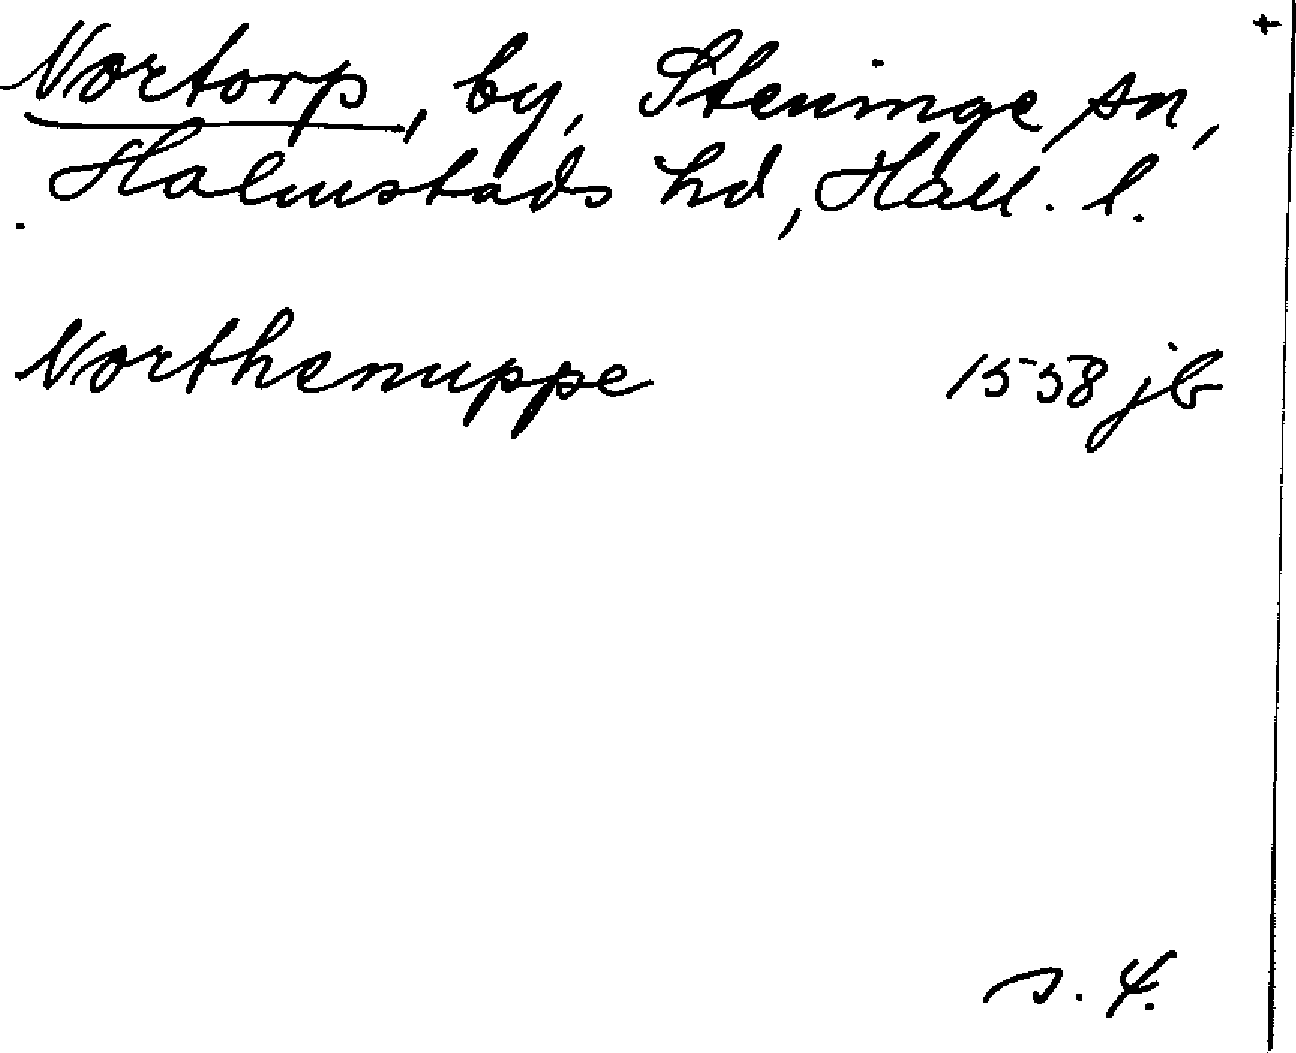 Nortorp, by, Steninge sn,
Halmstads hd, Hall. l.
Northenuppe 1558 jb
s. 4.